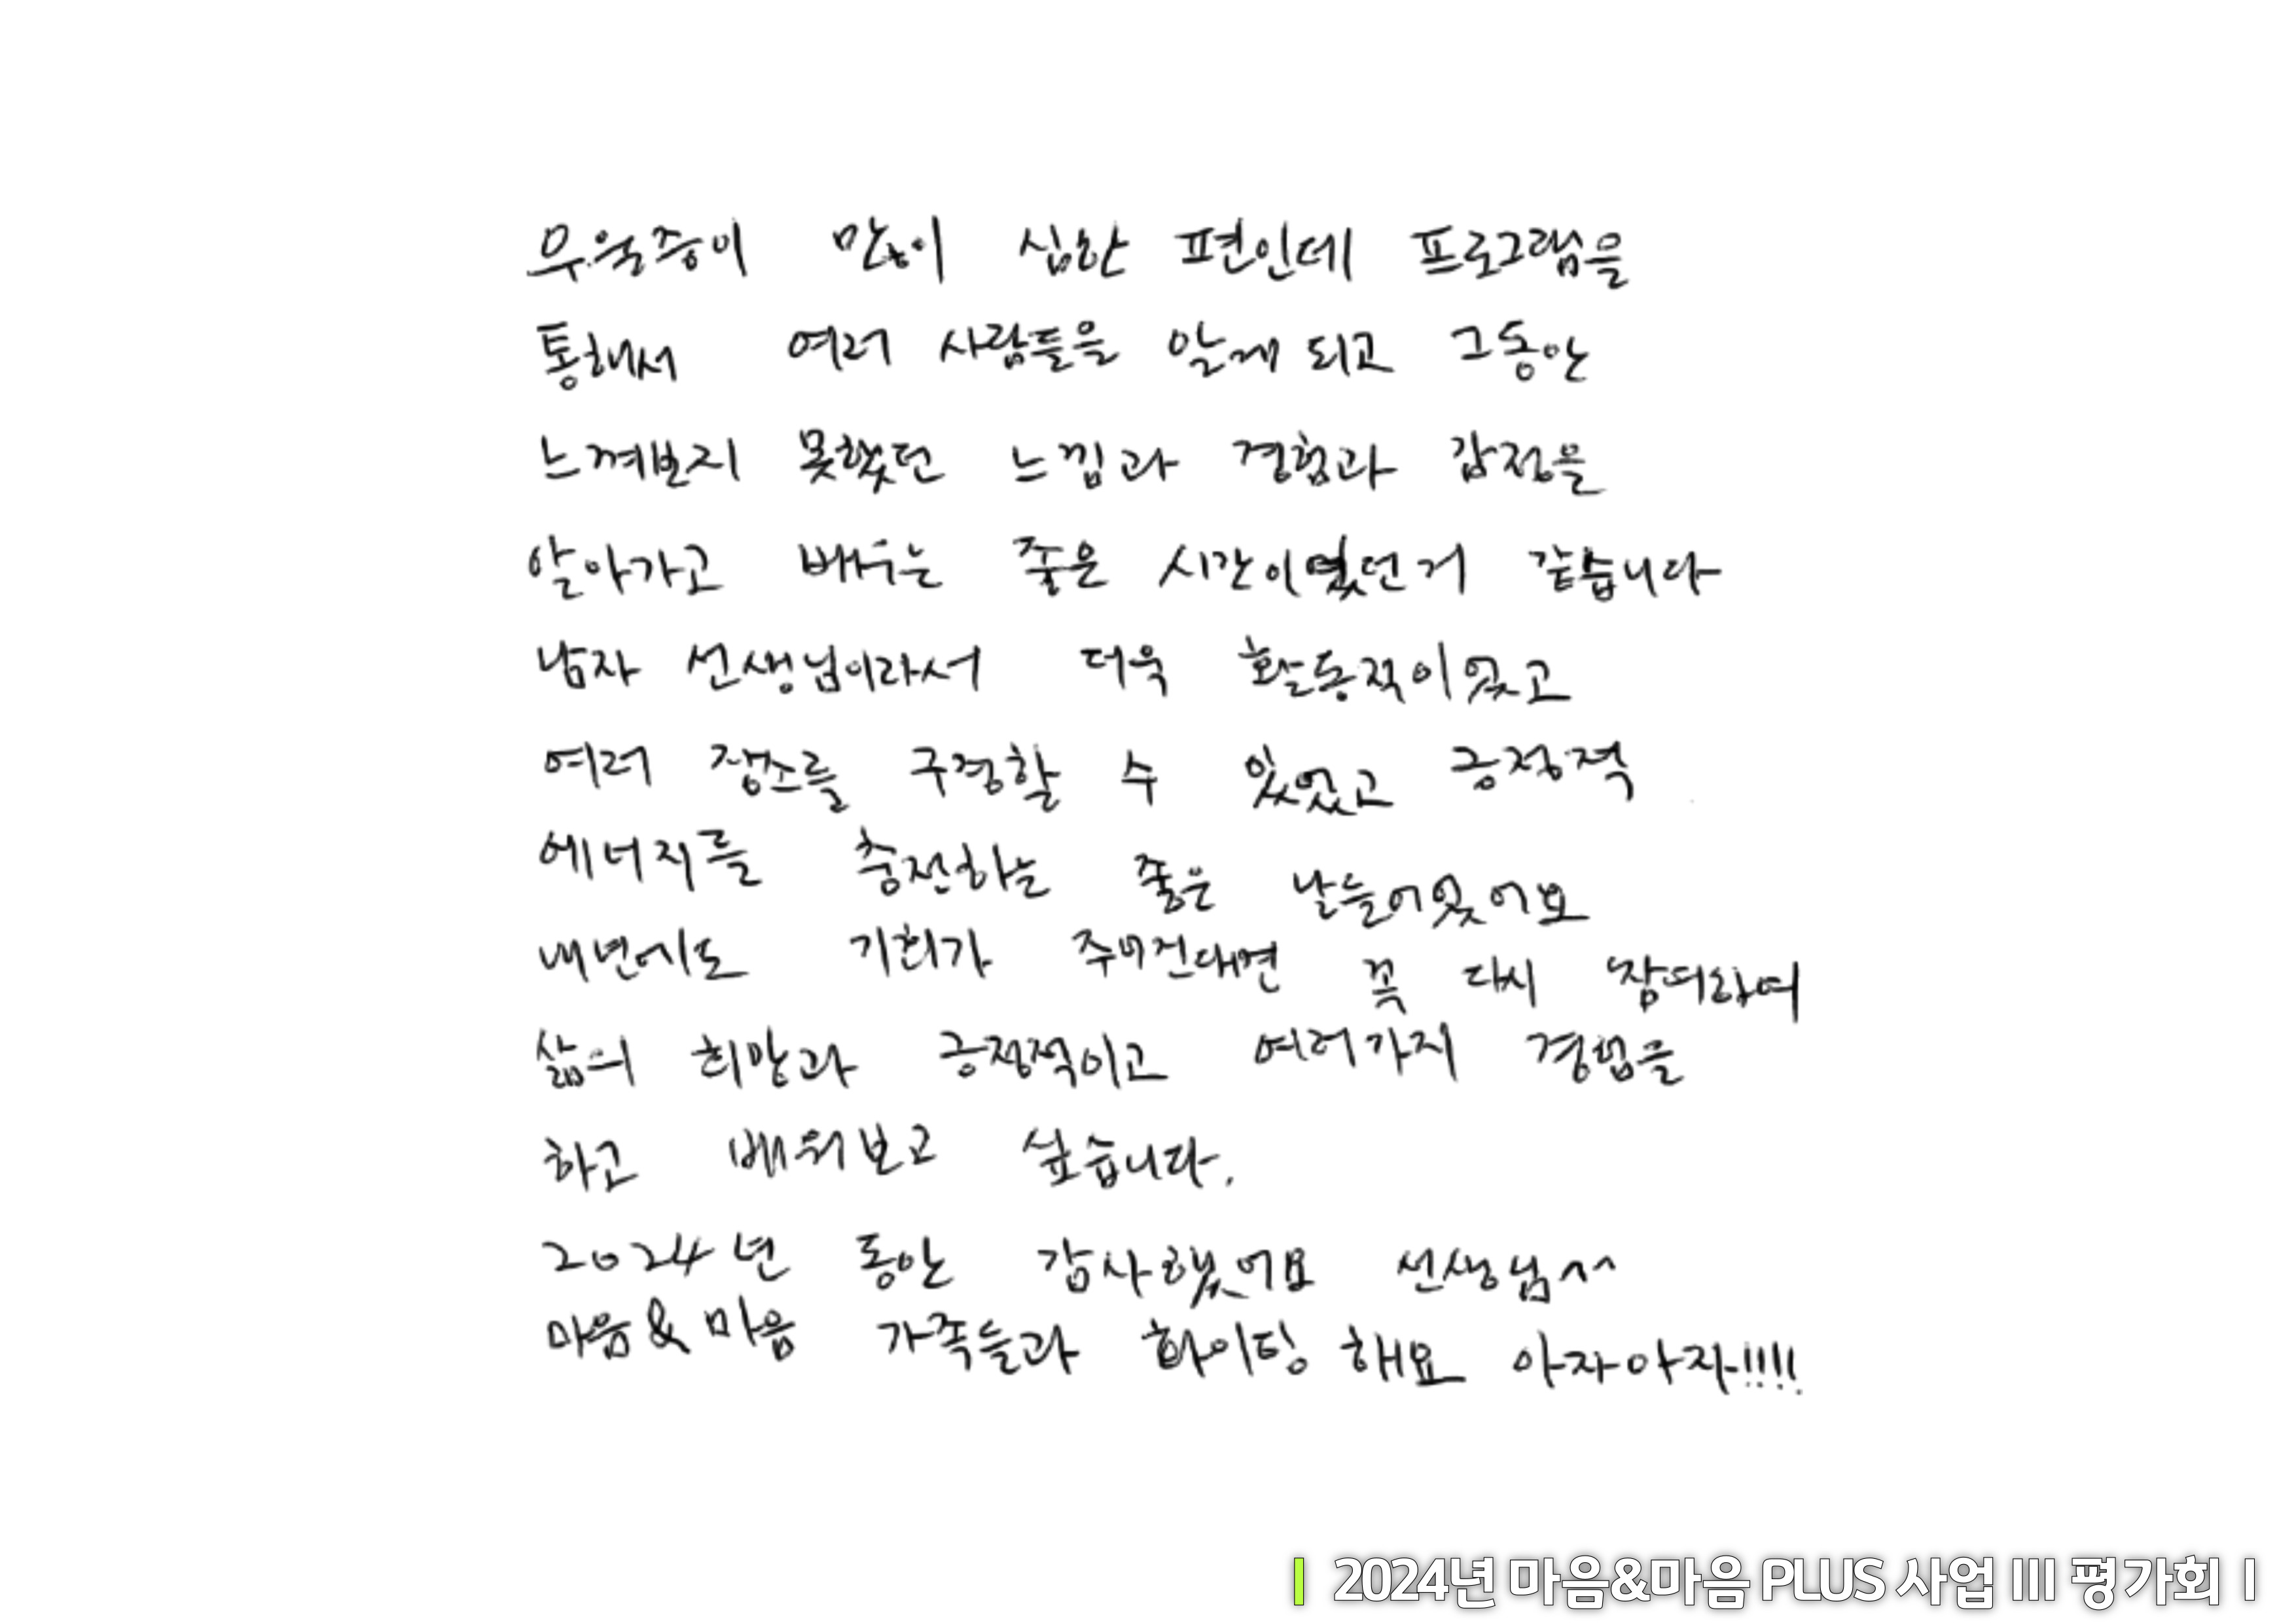 우울증이 많이 심한 편인데 프로그램을
통해서 여러 사람들을 알게 되고 그동안
느껴보지 못했던 느낌과 경험과 감정을
알아가고 배우는 좋은 시간이였던거 같습니다
남자 선생님이라서 더욱 활동적이였고
여러 장소를 구경할 수 있었고 긍정적
에너지를 충전하는 좋은 날들이였어요
내년에도 기회가 주어진다면 꼭 다시 참여하여
삶의 희망과 긍정적이고 여러가지 경험을
하고 배워보고 싶습니다.
2024년 동안 감사했어요 선생님^^
마음&마음 가족들과 화이팅 해요 아자아자!!!!
2024년 마음&마음 PLUS 사업 III 평가회 I